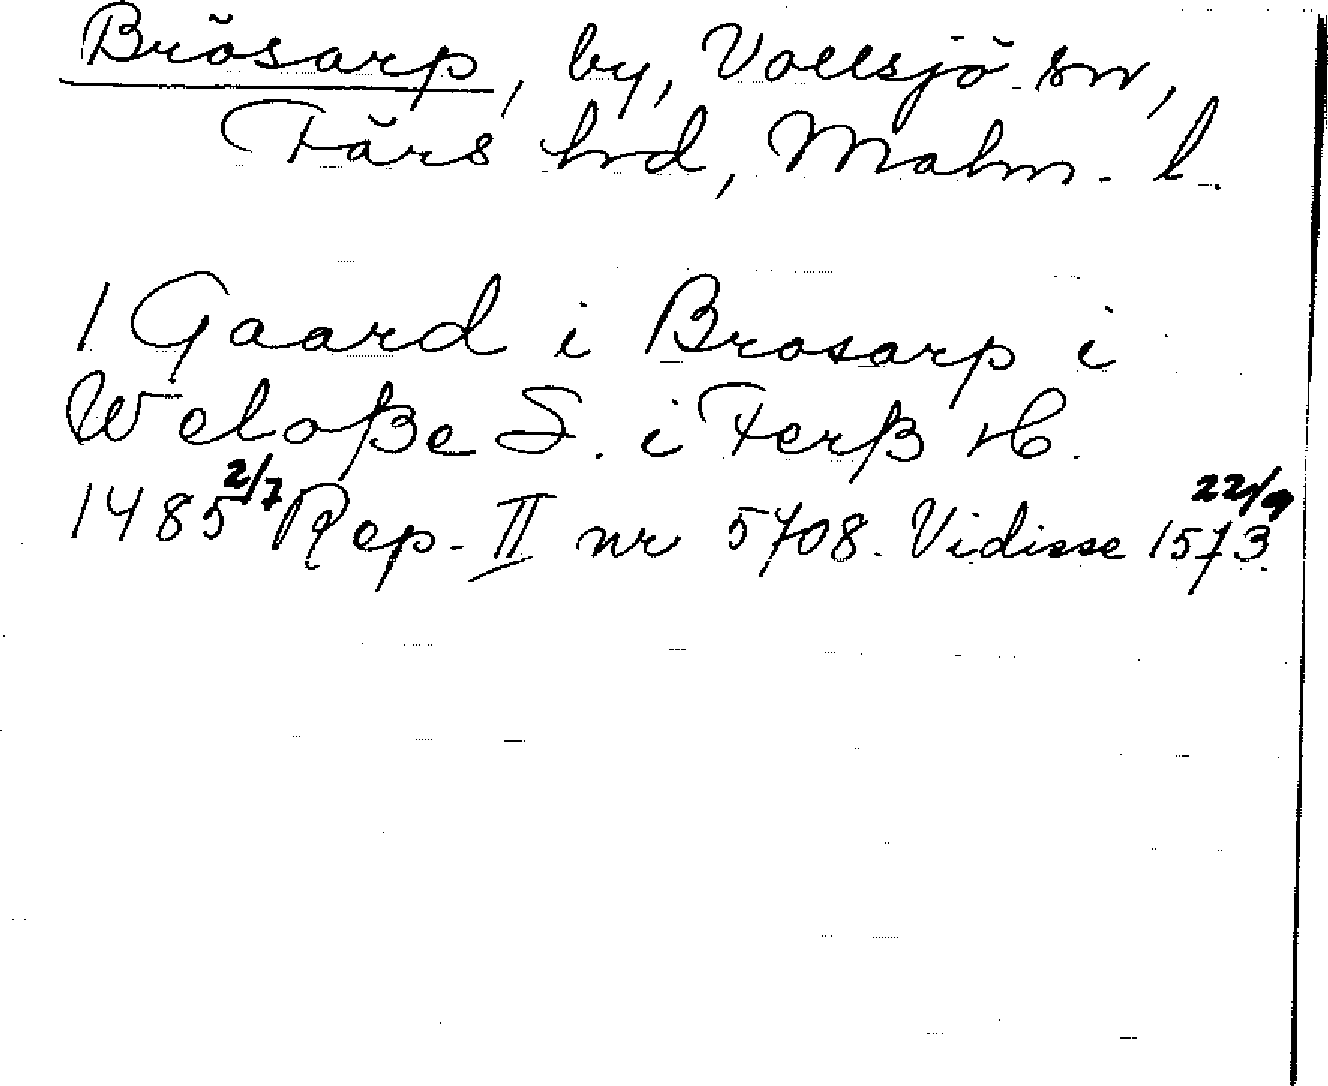 Brösarp, by, Vollsjö sn,
Färs hrd, Malm. l.
1 Gaard i Brosarp i
Weloße S. i Ferß H.
1485 2/7 Rep. II nr 5708. Vidisse 1573 22/9